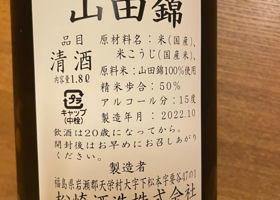 山田錦
品目
清酒
内容量1.8ℓ
プラ
キャップ
(中栓)
原材料名：米(国産)、
米こうじ(国産米)、
原料米：山田錦100%使用
精米歩合：50%
アルコール分：15度
製造年月：2022.10
飲酒は20歳になってから。
開封後はお早めにお召しあがり
ください。
製造者
福島県岩瀬郡天栄村大字下松本字要谷47の1
松崎酒造株式会社